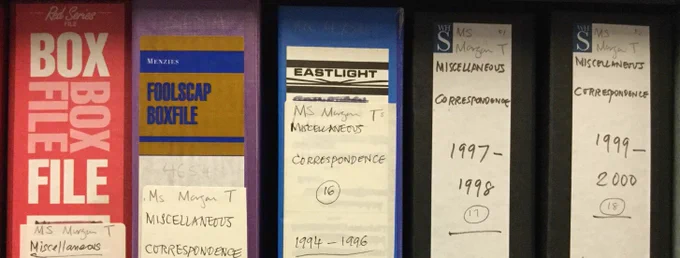 Red Series
FILE
BOX
BOX
FILE
FILE
MS Morgan T
Miscellaneous
MENZIES
FOOLSCAP
BOXFILE
Ms Morgan T
MISCELLANEOUS
CORRESPONDENCE
EASTLIGHT
MS Morgan T
MISCELLANEOUS
CORRESPONDENCE
16
1994 - 1996
WH
S
MS
Morgan T
MISCELLANEOUS
CORRESPONDENCE
1997-
1998
17
WH
S
MS
Morgan T
MISCELLANEOUS
CORRESPONDENCE
1999-
2000
18